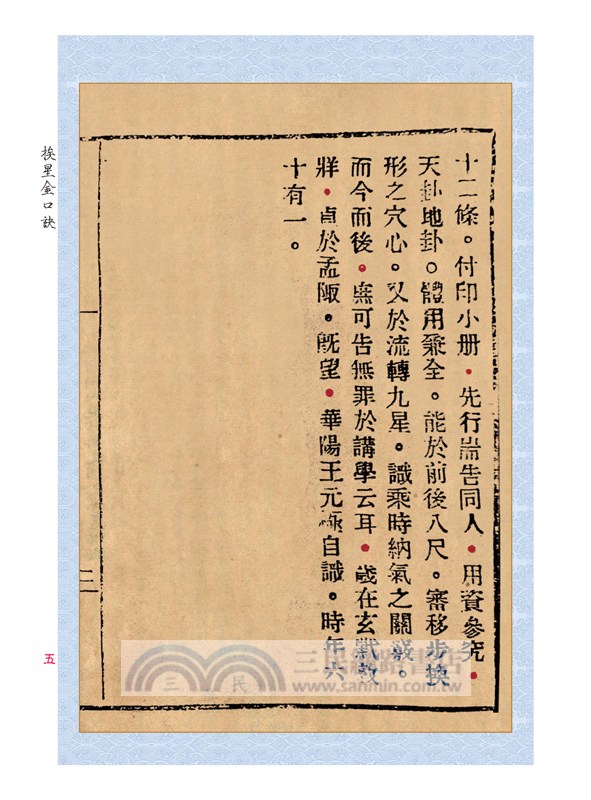 十二條。付印小册。先行耑告同人。用資參究。
天卦地卦。體用兼全。能於前後八尺。審移步換
形之穴心。又於流轉九星。識乘時納氣之關竅。
而今而後。庶可告無罪於講學云耳。歲在玄黓敦
牂。貞於孟陬。旣望。華陽王元極自識。時年六
十有一。
一
三
挨星金口訣
五
三民
三民網路書店
www.sanmin.com.tw